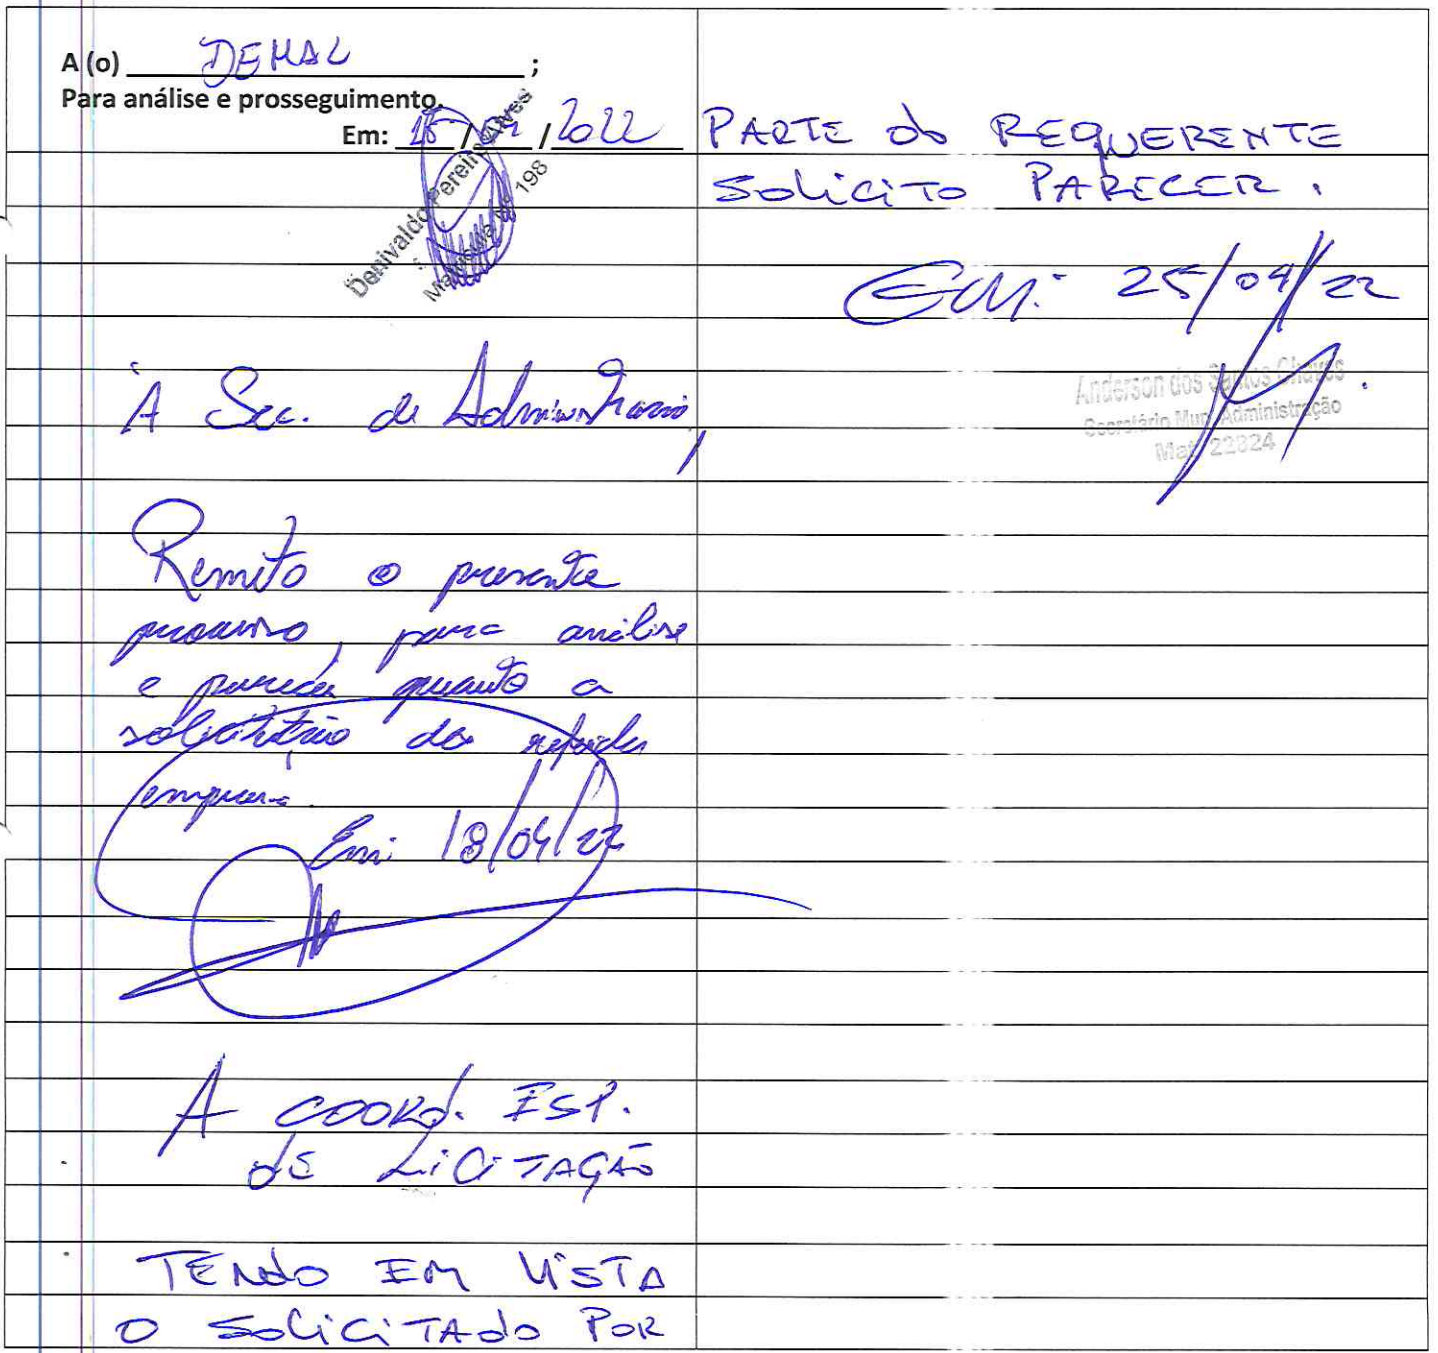 A (o) DEMAL ;
Para análise e prosseguimento.
Em: 18 / 04 / 2022
Denivaldo Pereira Alves
Matrícula Nº 198
À Sec. de Administração,
Remito o presente
processo, para análise
e parecer quanto a
solicitação da referida
empresa.
Em: 18/04/22
A COORD. ESP.
DE LICITAÇÃO
TENDO EM VISTA
O SOLICITADO POR
PARTE DO REQUERENTE
SOLICITO PARECER.
Em: 25/04/22
Anderson dos Santos Chaves
Secretário Mun. Administração
Mat. 22824